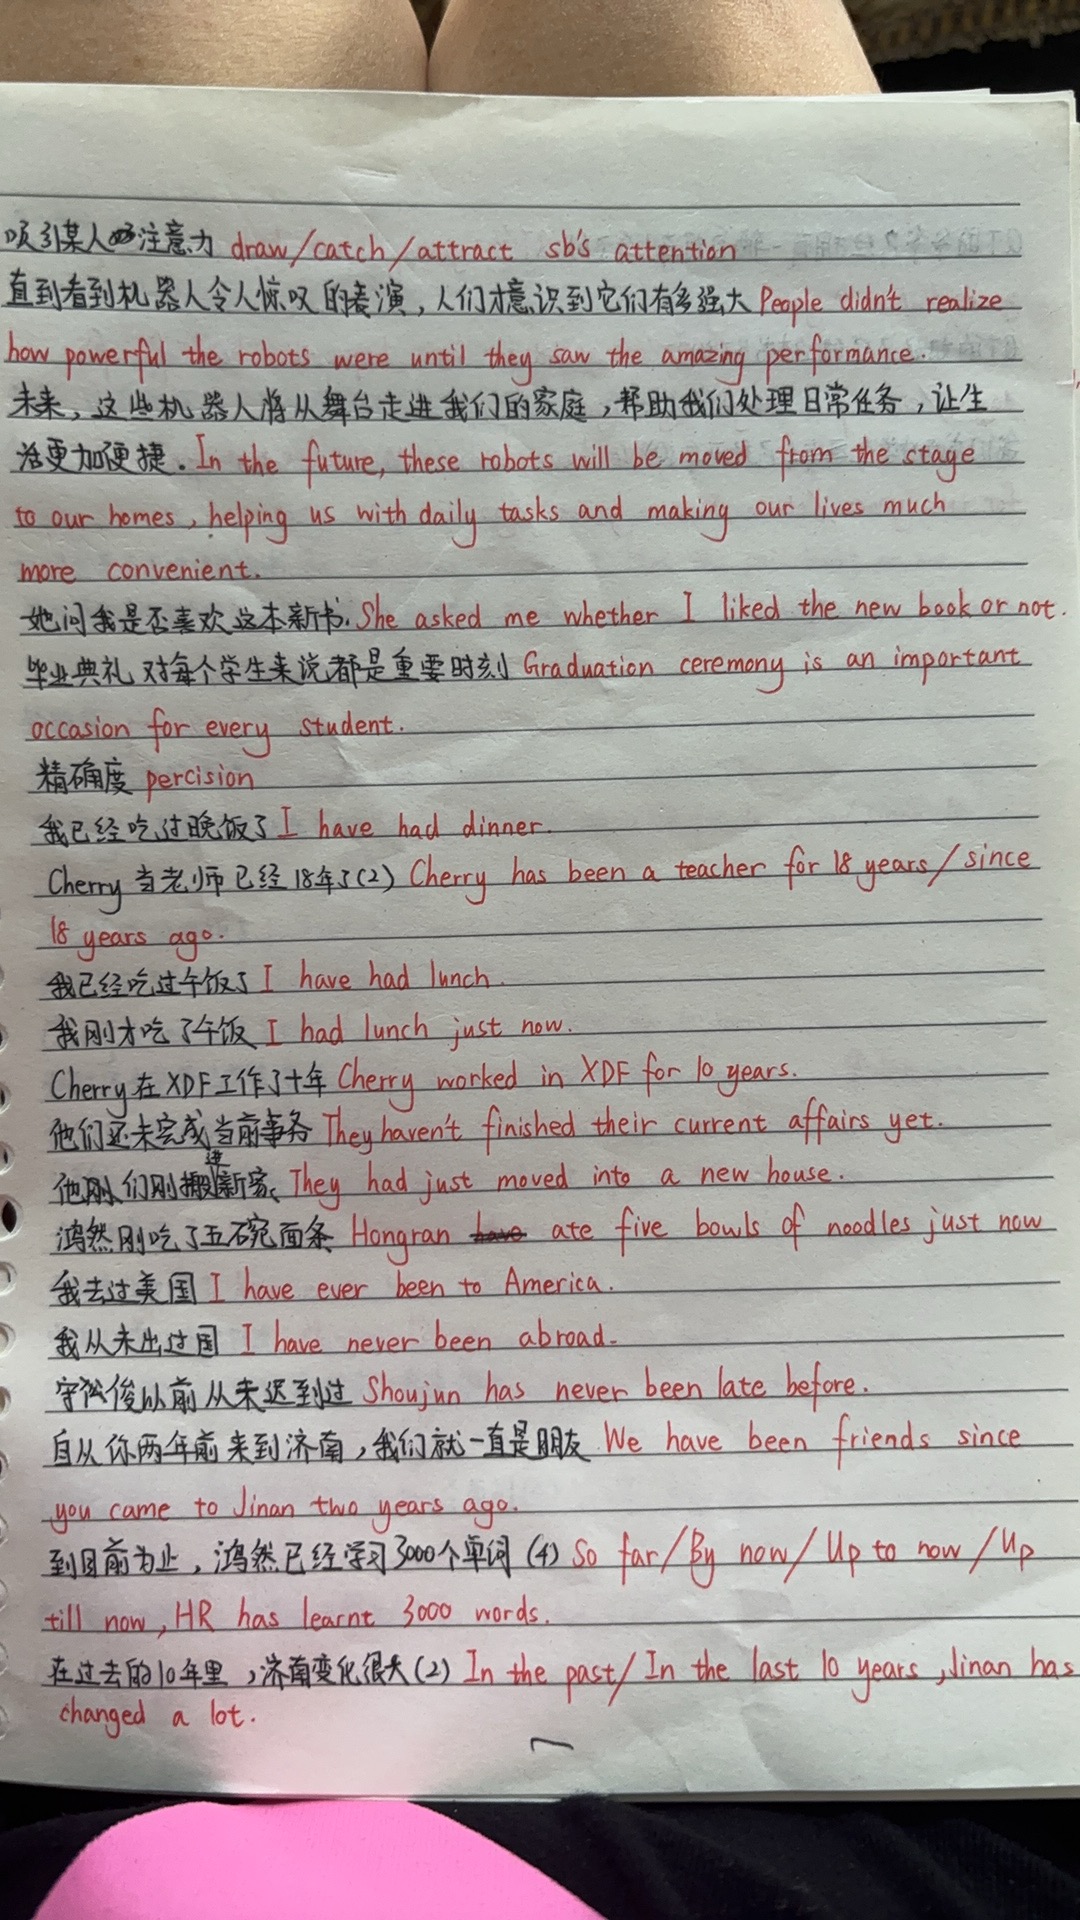 吸引某人注意力 draw/catch/attract sb's attention
直到看到机器人令人惊叹的表演，人们才意识到它们有多强大 People didn't realize
how powerful the robots were until they saw the amazing performance.
未来，这些机器人将从舞台走进我们的家庭，帮助我们处理日常任务，让生
活更加便捷. In the future, these robots will be moved from the stage
to our homes, helping us with daily tasks and making our lives much
more convenient.
她问我是否喜欢这本新书. She asked me whether I liked the new book or not.
毕业典礼对每个学生来说都是重要时刻 Graduation ceremony is an important
occasion for every student.
精确度 percision
我已经吃过晚饭了 I have had dinner.
Cherry当老师已经18年了(2) Cherry has been a teacher for 18 years/since
18 years ago.
我已经吃过午饭了 I have had lunch.
我刚才吃了午饭 I had lunch just now.
Cherry在XDF工作了十年 Cherry worked in XDF for 10 years.
他们还未完成当前事务 They haven't finished their current affairs yet.
他们刚搬进新家、They had just moved into a new house.
鸿然刚吃了五碗面条 Hongran have ate five bowls of noodles just now
我去过美国 I have ever been to America.
我从未出过国 I have never been abroad.
俊以前从未迟到过 Shoujun has never been late before.
自从你两年前来到济南，我们就一直是朋友 We have been friends since
you came to Jinan two years ago.
到目前为止，鸿然已经学习3000个单词 (4) So far/By now/Up to now/Up
till now, HR has learnt 3000 words.
在过去的10年里，济南变化很大(2) In the past/In the last 10 years, Jinan has
changed a lot.